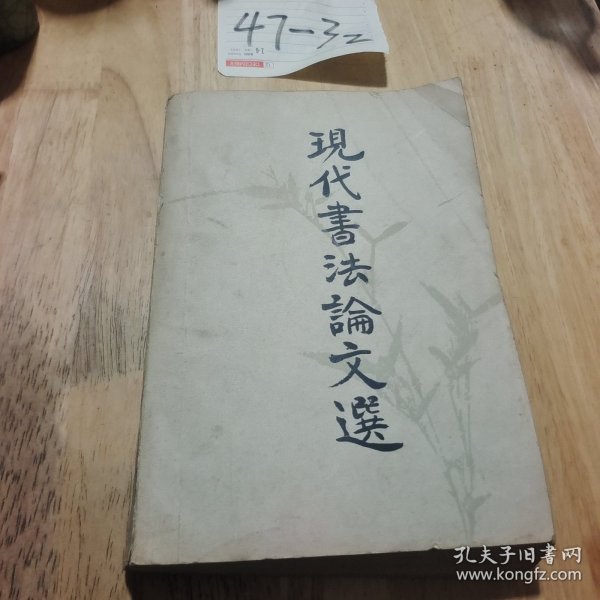 47-32
現代書法論文選
孔夫子旧书网
www.kongfz.com